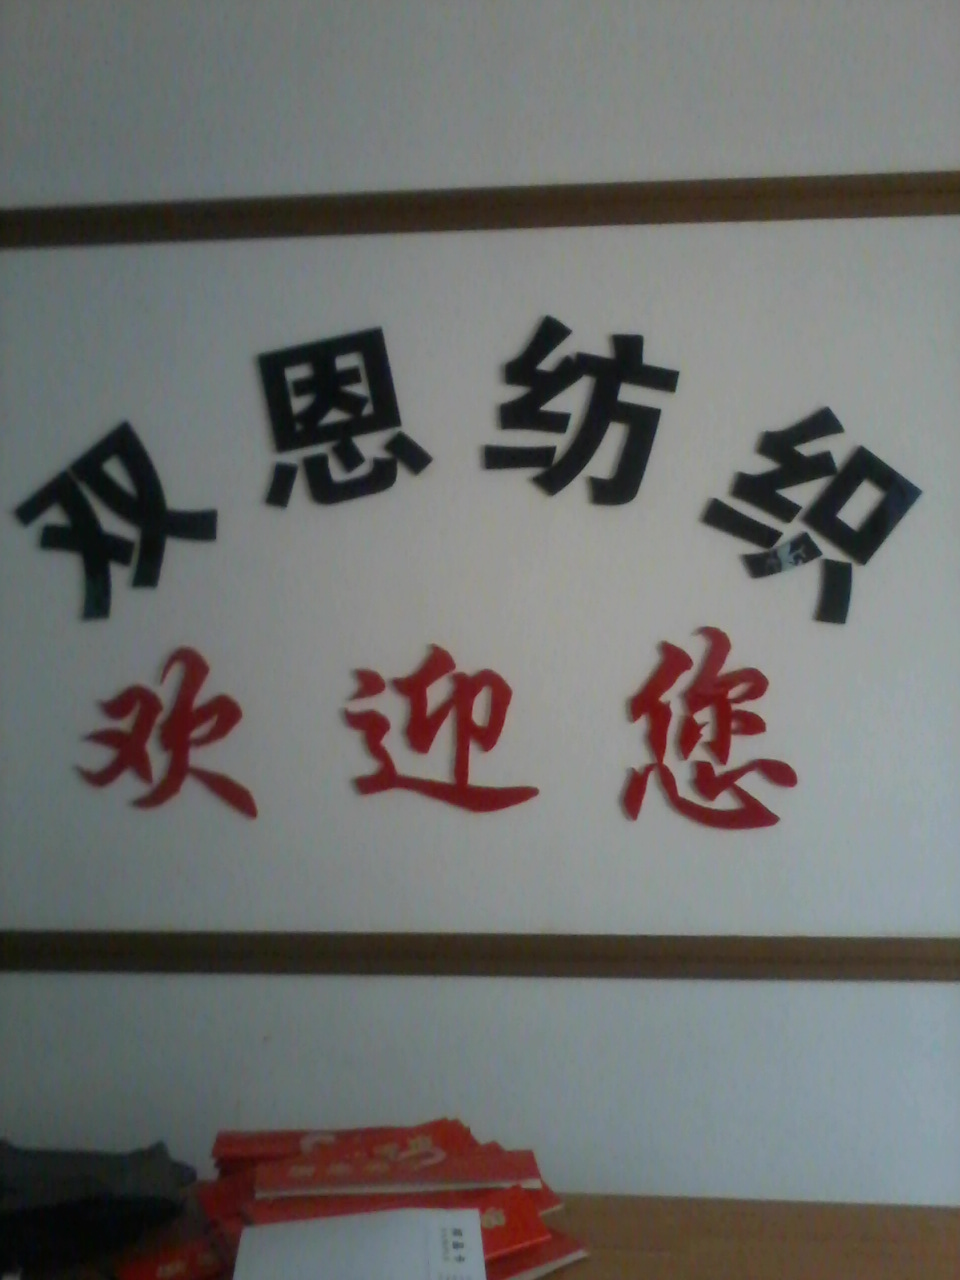 双恩纺织
欢迎您